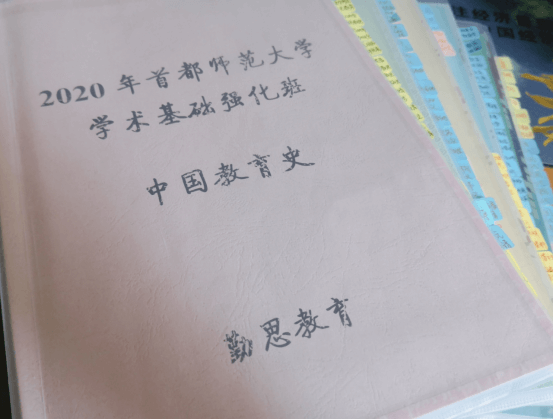 2020年首都师范大学
学术基础强化班
中国教育史
勤思教育